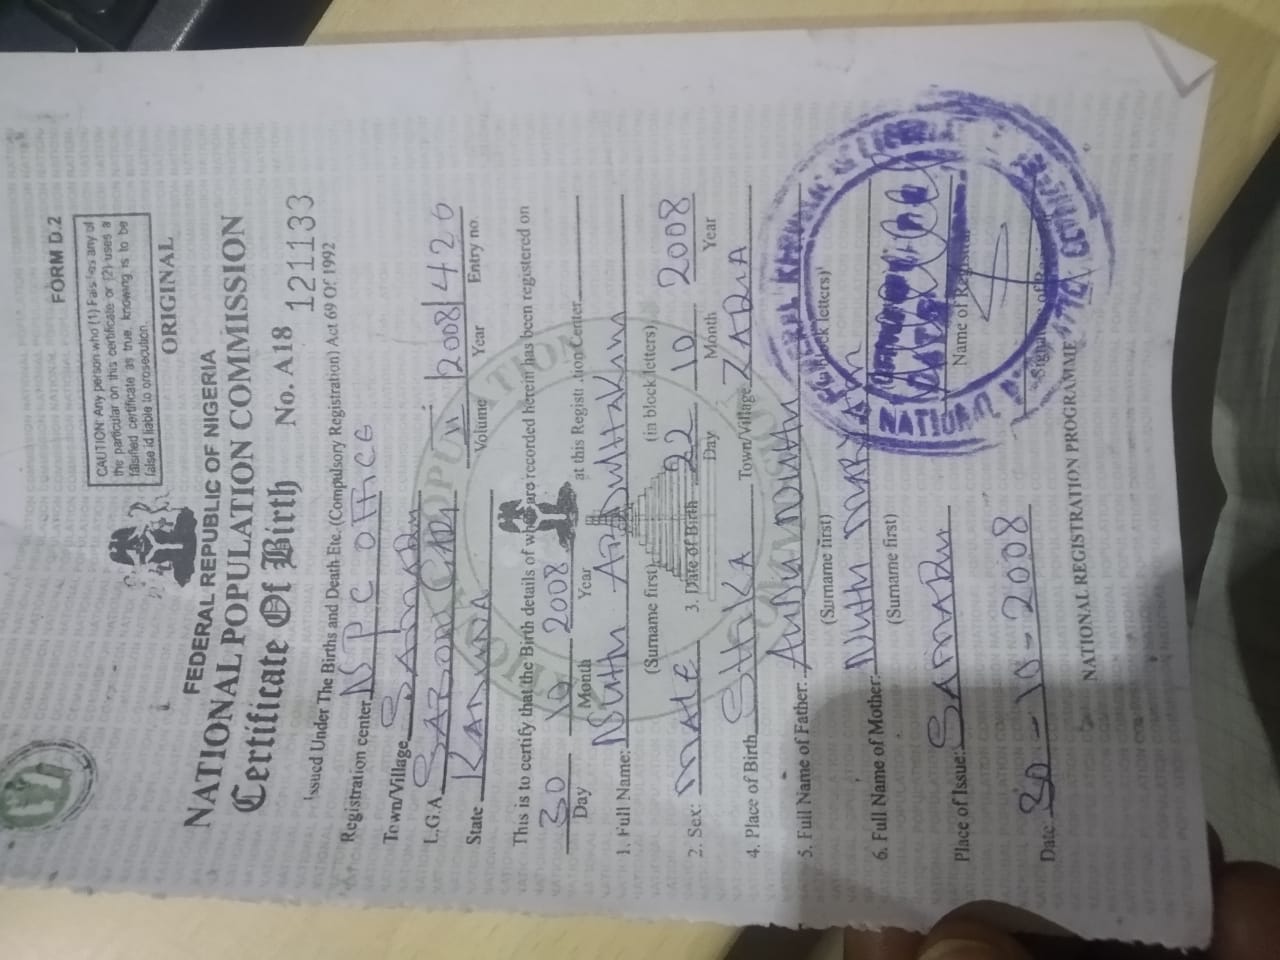 FORM D.2
CAUTION: Any person who (1) Falsifies any of
the particular on this certificate or (2) uses a
falsified certificate as true, knowing is to be
false id liable to prosecution.
ORIGINAL
FEDERAL REPUBLIC OF NIGERIA
NATIONAL POPULATION COMMISSION
Certificate Of Birth No. A18 121133
Issued Under The Births and Death Etc. (Compulsory Registration) Act 69 Of 1992
Registration center NPC OFFICE
Town/Village SAMARU
L.G.A SABON GARI 2008 426
State KADUNA Volume Year Entry no.
This is to certify that the Birth details of who are recorded herein has been registered on
30 10 2008 at this Registration Center
Day Month Year
1. Full Name:
(Surname first) (in block letters)
2. Sex: MALE 3. Date of Birth 22 10 2008
Day Month Year
4. Place of Birth SHIKA Town/Village ZARIA
5. Full Name of Father:
(Surname first) (in block letters)
6. Full Name of Mother:
(Surname first) Name of Registrar
Place of Issue: SAMARU
Date 30-10-2008
NATIONAL REGISTRATION PROGRAMME